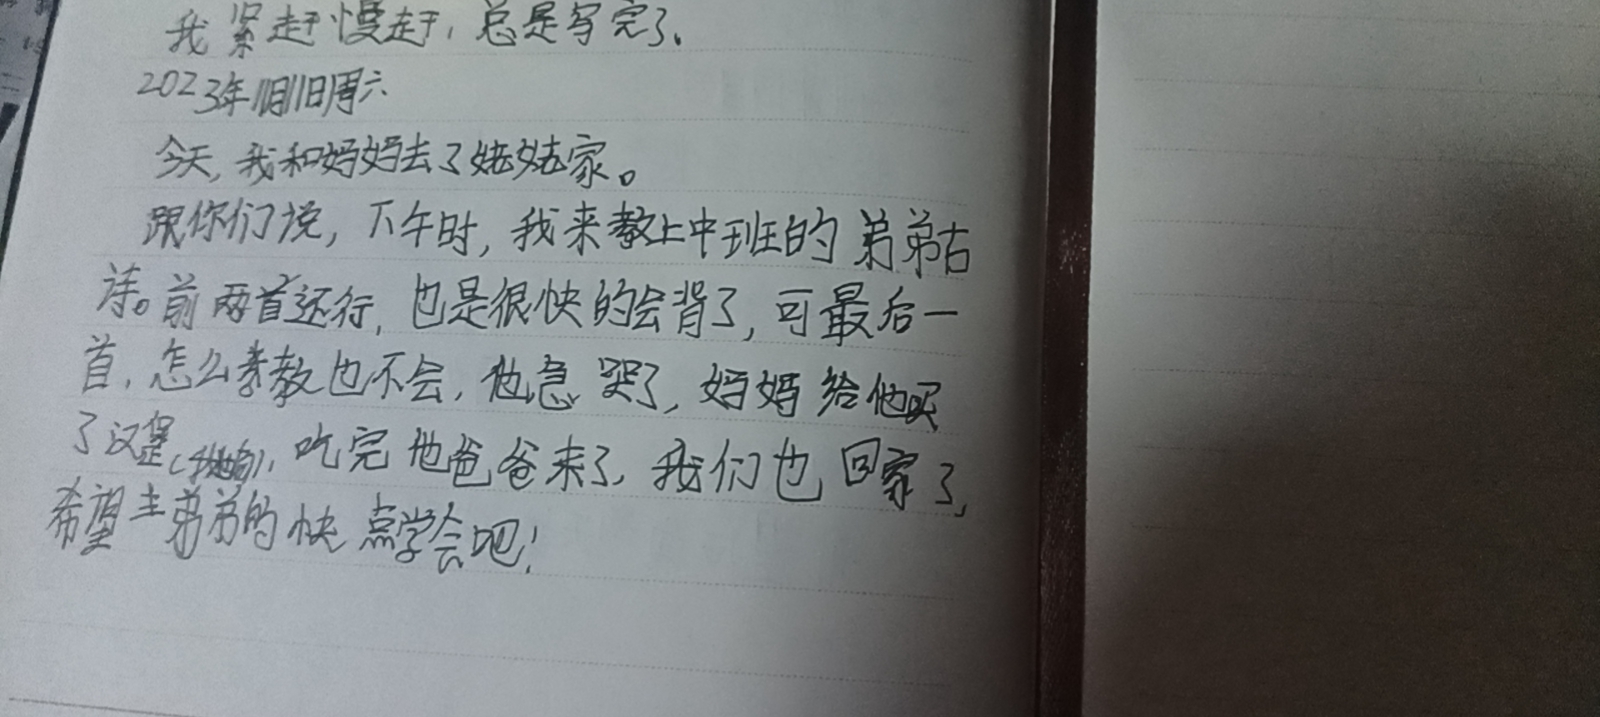 我紧赶慢赶，总是写完了。
2023年11月11日周六
今天，我和妈妈去了姥姥家。
跟你们说，下午时，我来教上中班的弟弟古
诗。前两首还行，也是很快的会背了，可最后一
首，怎么教也不会，他急哭了，妈妈给他买
了汉堡（），吃完他爸爸来了，我们也回家了，
希望弟弟的快点学会吧！